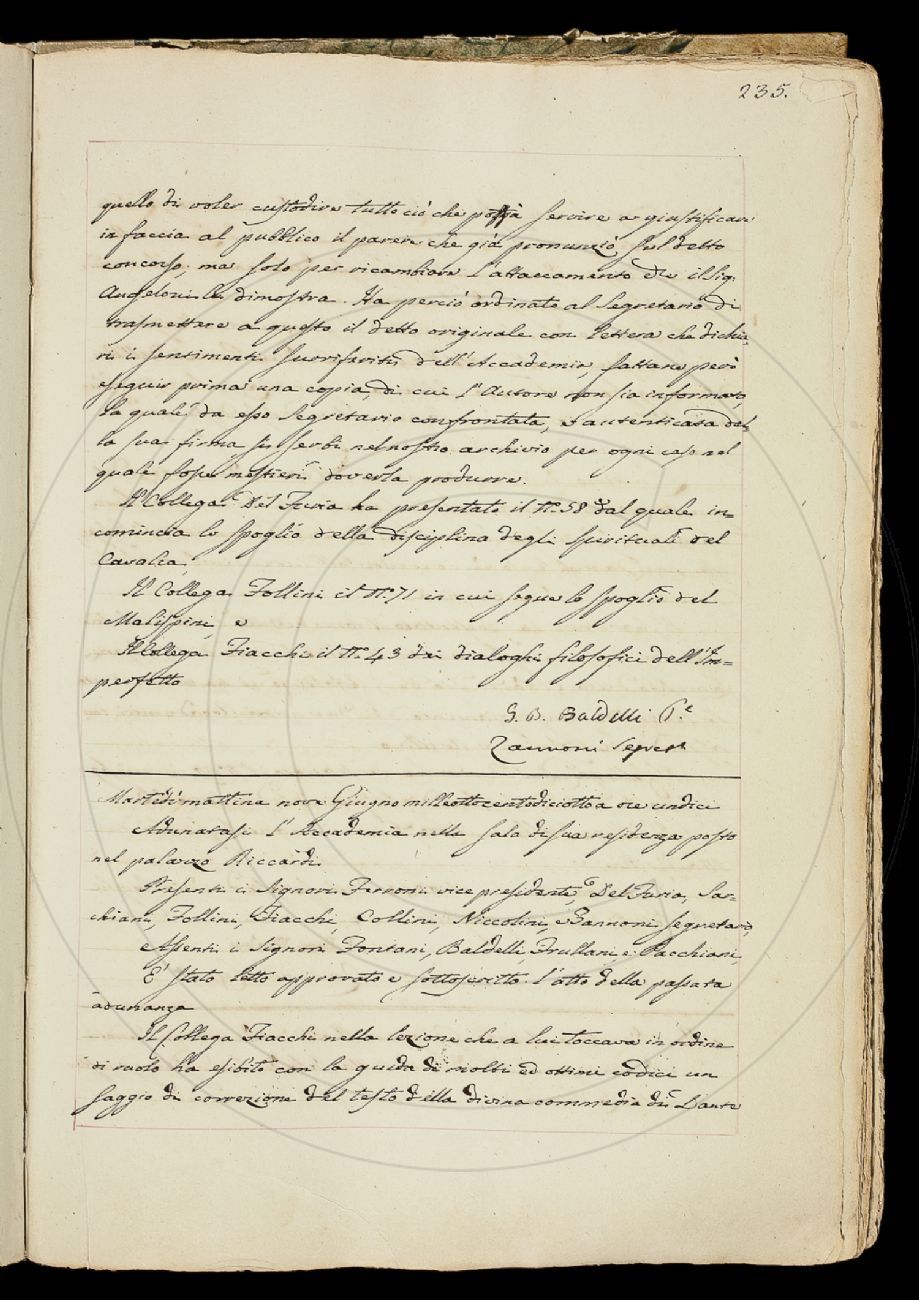 235.
quello di voler custodire tutto ciò che possa servire a giustificare
in faccia al pubblico il parere che già pronunziò sul detto
concorso; ma solo per ricambiare l'attaccamento che il Sig.
Angeloni le dimostra. Ha perciò ordinato al Segretario di
trasmettere a questo il detto originale con lettera che dichia-
ri i sentimenti surriferiti dell'Accademia, fattane però
eseguir prima una copia, di cui l'Autore non sia informato,
la quale da esso Segretario confrontata, e autenticata del-
la sua firma si serbi nel nostro archivio per ogni caso nel
quale fosse mestieri doverla produrre.
Il Collega Del Furia ha presentato il N.° 58 dal quale in=
comincia lo spoglio della disciplina degli spirituali del
Cavalca,
Il Collega Follini il N.° 71 in cui segue lo spoglio del
Malispini, e
Il Collega Fiacchi il N.° 43 dei dialoghi filosofici dell'Im=
perfetto
G. B. Baldelli P.e
Zannoni Segret.
Martedì mattina nove Giugno milleottocentodiciotto a ore undici
Adunatasi l'Accademia nella sala di sua residenza posta
nel palazzo Riccardi.
Presenti i Signori Ferroni vice presidente, Del Furia, Sar=
chiani, Follini, Fiacchi, Collini, Niccolini, e Zannoni segretario,
Assenti i Signori Fontani, Baldelli, Frullani, e Pacchiani,
E' stato letto approvato e sottoscritto l'atto della passata
adunanza
Il Collega Fiacchi nella lezione che a lui toccava in ordine
di ruolo ha esibito con la guida di molti ed ottimi codici un
saggio di correzione del testo della divina commedia di Dante